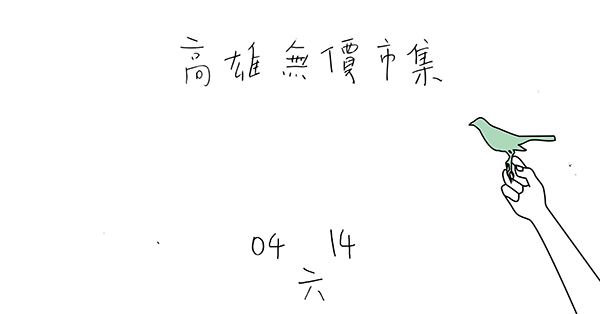 高雄無價市集
04 14
六